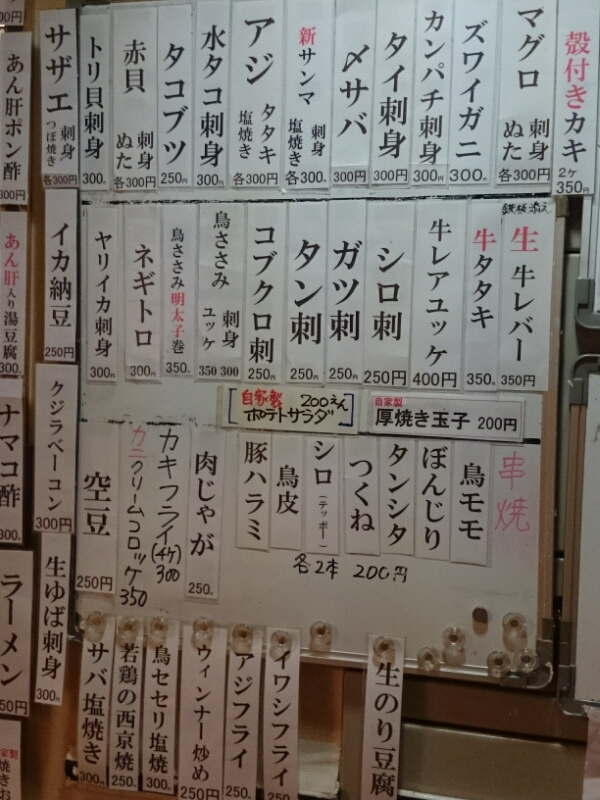 殻付きカキ 2ヶ 350円
マグロ 刺身 ぬた 各300円
ズワイガニ 300円
カンパチ刺身 300円
タイ刺身 300円
〆サバ 300円
新サンマ 刺身 塩焼き 各300円
アジ タタキ 塩焼き 各300円
水タコ刺身 300円
タコブツ 250円
赤貝 刺身 ぬた 各300円
トリ貝刺身 300円
サザエ 刺身 つぼ焼き 各300円
あん肝ポン酢 300円
鉄板添え
生牛レバー 350円
牛タタキ 350円
牛レアユッケ 400円
シロ刺 250円
ガツ刺 250円
タン刺 250円
コブクロ刺 250円
鳥ささみ 刺身 ユッケ 300 350
鳥ささみ明太子巻 350円
ネギトロ 300円
ヤリイカ刺身 300円
イカ納豆 250円
あん肝入り湯豆腐 300円
自家製 ポテトサラダ 200えん
自家製 厚焼き玉子 200円
串焼
鳥モモ
ぼんじり
タンシタ
つくね
シロ(テッポー)
鳥皮
豚ハラミ
各2本 200円
肉じゃが 250円
カキフライ(4ヶ) 300
カニクリームコロッケ 350
空豆 250円
クジラベーコン 300円
ナマコ酢 300円
生のり豆腐
イワシフライ 250円
アジフライ 250円
ウィンナー炒め 250円
鳥セセリ塩焼 300円
若鶏の西京焼 250円
サバ塩焼き 300円
生ゆば刺身 300円
ラーメン 350円